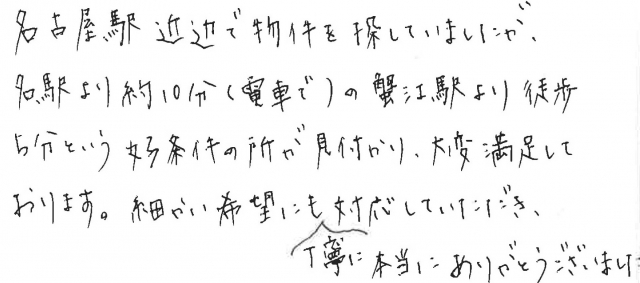 名古屋駅近辺で物件を探していましたが、
名駅より約10分(電車で)の蟹江駅より徒歩
5分という好条件の所が見付かり、大変満足して
おります。細かい希望にも丁寧に対応していただき、
本当にありがとうございました